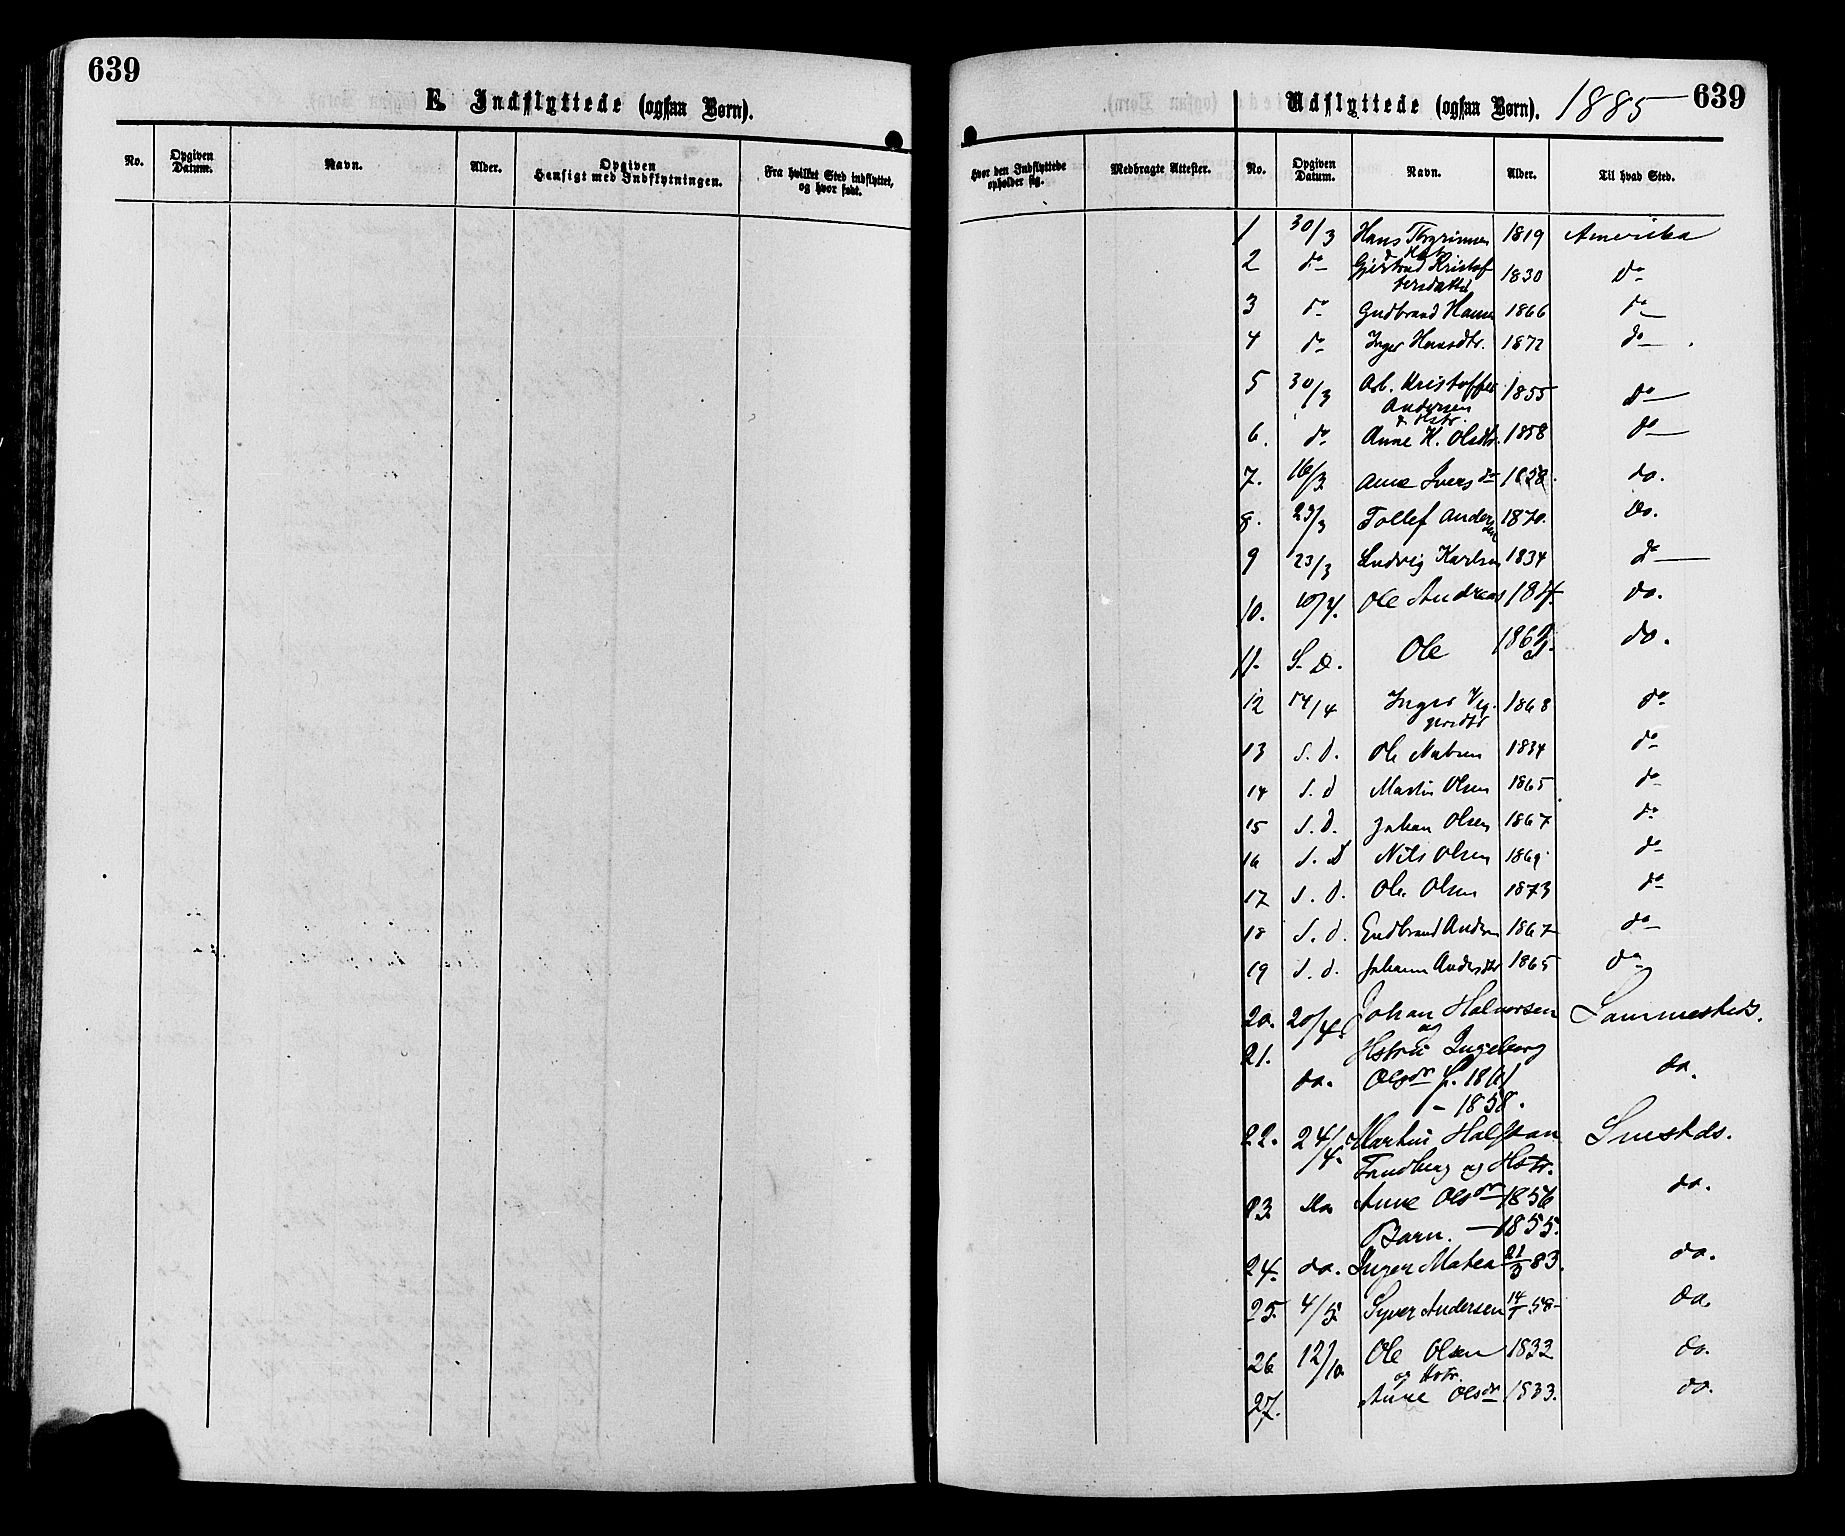 639
E. Indflyttede (ogsaa Børn).
No.
Opgiven Datum.
Navn.
Alder.
Opgiven Hensigt med Indflytningen.
Fra hvilket Sted indflyttet, og hvor født.
639
Udflyttede (ogsaa Børn). 1885
Hvor den Indflyttede opholder sig.
Medbragte Attester.
No.
Opgiven Datum.
Navn.
Alder.
Til hvad Sted.
1 30/3 Hans 1819 Amerika
2 do Gjertrud Kristof 1830 Do
fersdatter
3 do Gudbrand Hansen 1866 do
4 do Inger Hansdtr. 1872 do
5 30/3 Arb. Kristoffer 1855 do
Andersen
& Hstr.
6. do Anne K. Olsdtr. 1858 do
7. 16/3 Anne Ivers do 1828. do.
8. 23/3 Tollef Andersen 1870. Do.
9 23/3 Ludvig Karlsen 1834 do
10. 10/4. Ole Andreas do.
11. S. D. Ole do.
12 14/4 Inger 1868 do
13 S. D. Ole 1834 do
14 S. D Martin Olsen 1865 do
15 S. D. Johan Olsen 1867 do
16 S. D Nils Olsen 1869 do
17 S. D. Ole Olsen 1873 do
18 S. d. Gudbrand Andersen 1867 do
19 S. d. Johanne Andersdtr 1865 do
20. 20/4. Johan Halvorsen Sammesteds.
og
21. Hstru Ingeborg
do. Olsdr f. 1861 do.
- 1858.
22. 24/4. Martin Halfstan Smstds.
og Hstr.
23 do Anne Olsdr 1856 do.
Barn. - 1855.
24. do. Inger Matea 21/3 83. do.
25. 4/5. Syver Andersen 58 do.
26 12/10 Ole Olsen 1832 do.
og Hstr.
27. Anne Olsdr 1833. do.